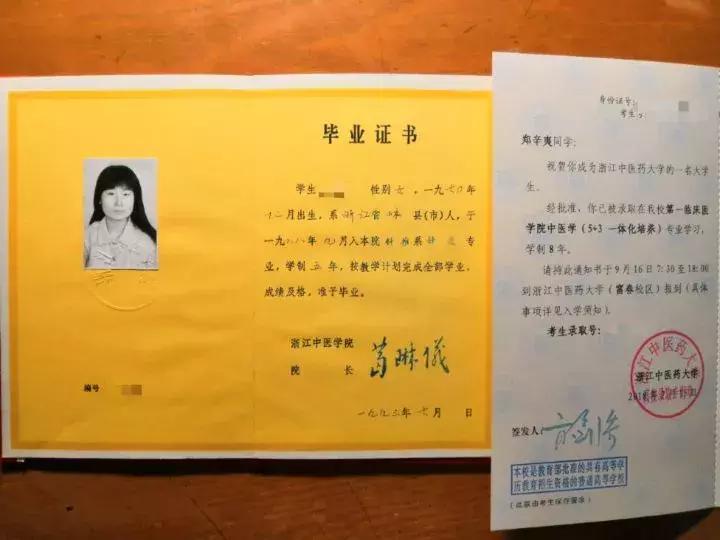 毕业证书
学生 性别女,一九七〇年
十二月出生,系浙江省 县(市)人,于
一九八八年九月入本院针推系针灸专
业,学制五年,按教学计划完成全部学业,
成绩及格,准予毕业。
浙江中医学院
院 长 葛琳仪
编号
一九九三年七月 日
身份证号:
考生
郑辛夷同学:
祝贺你成为浙江中医药大学的一名大学
生。
经批准,你已被录取在我校第一临床医
学院中医学(5+3 一体化培养)专业学习,
学制 8年。
请持此通知书于 9月16日 7:30 至 18:00
到浙江中医药大学(富春校区)报到(具体
事项详见入学须知)。
考生录取号:
浙江中医药大学
浙江中医药大学
签发人:
本校是教育部批准的具有高等学
历教育招生资格的普通高等学校
(此联由考生保存留念)